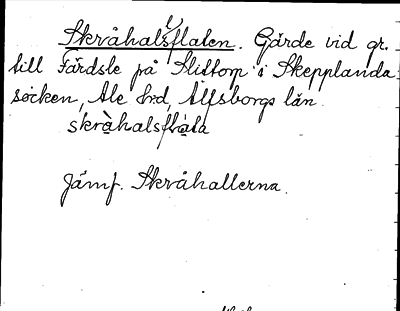 Skråhalsflaten. Gärde vid gr.
till Färdsle på Slittorp i Skepplanda
socken, Ale hrd, Älfsborgs län.
skràhalsflàta
Jämf. Skråhallerna.